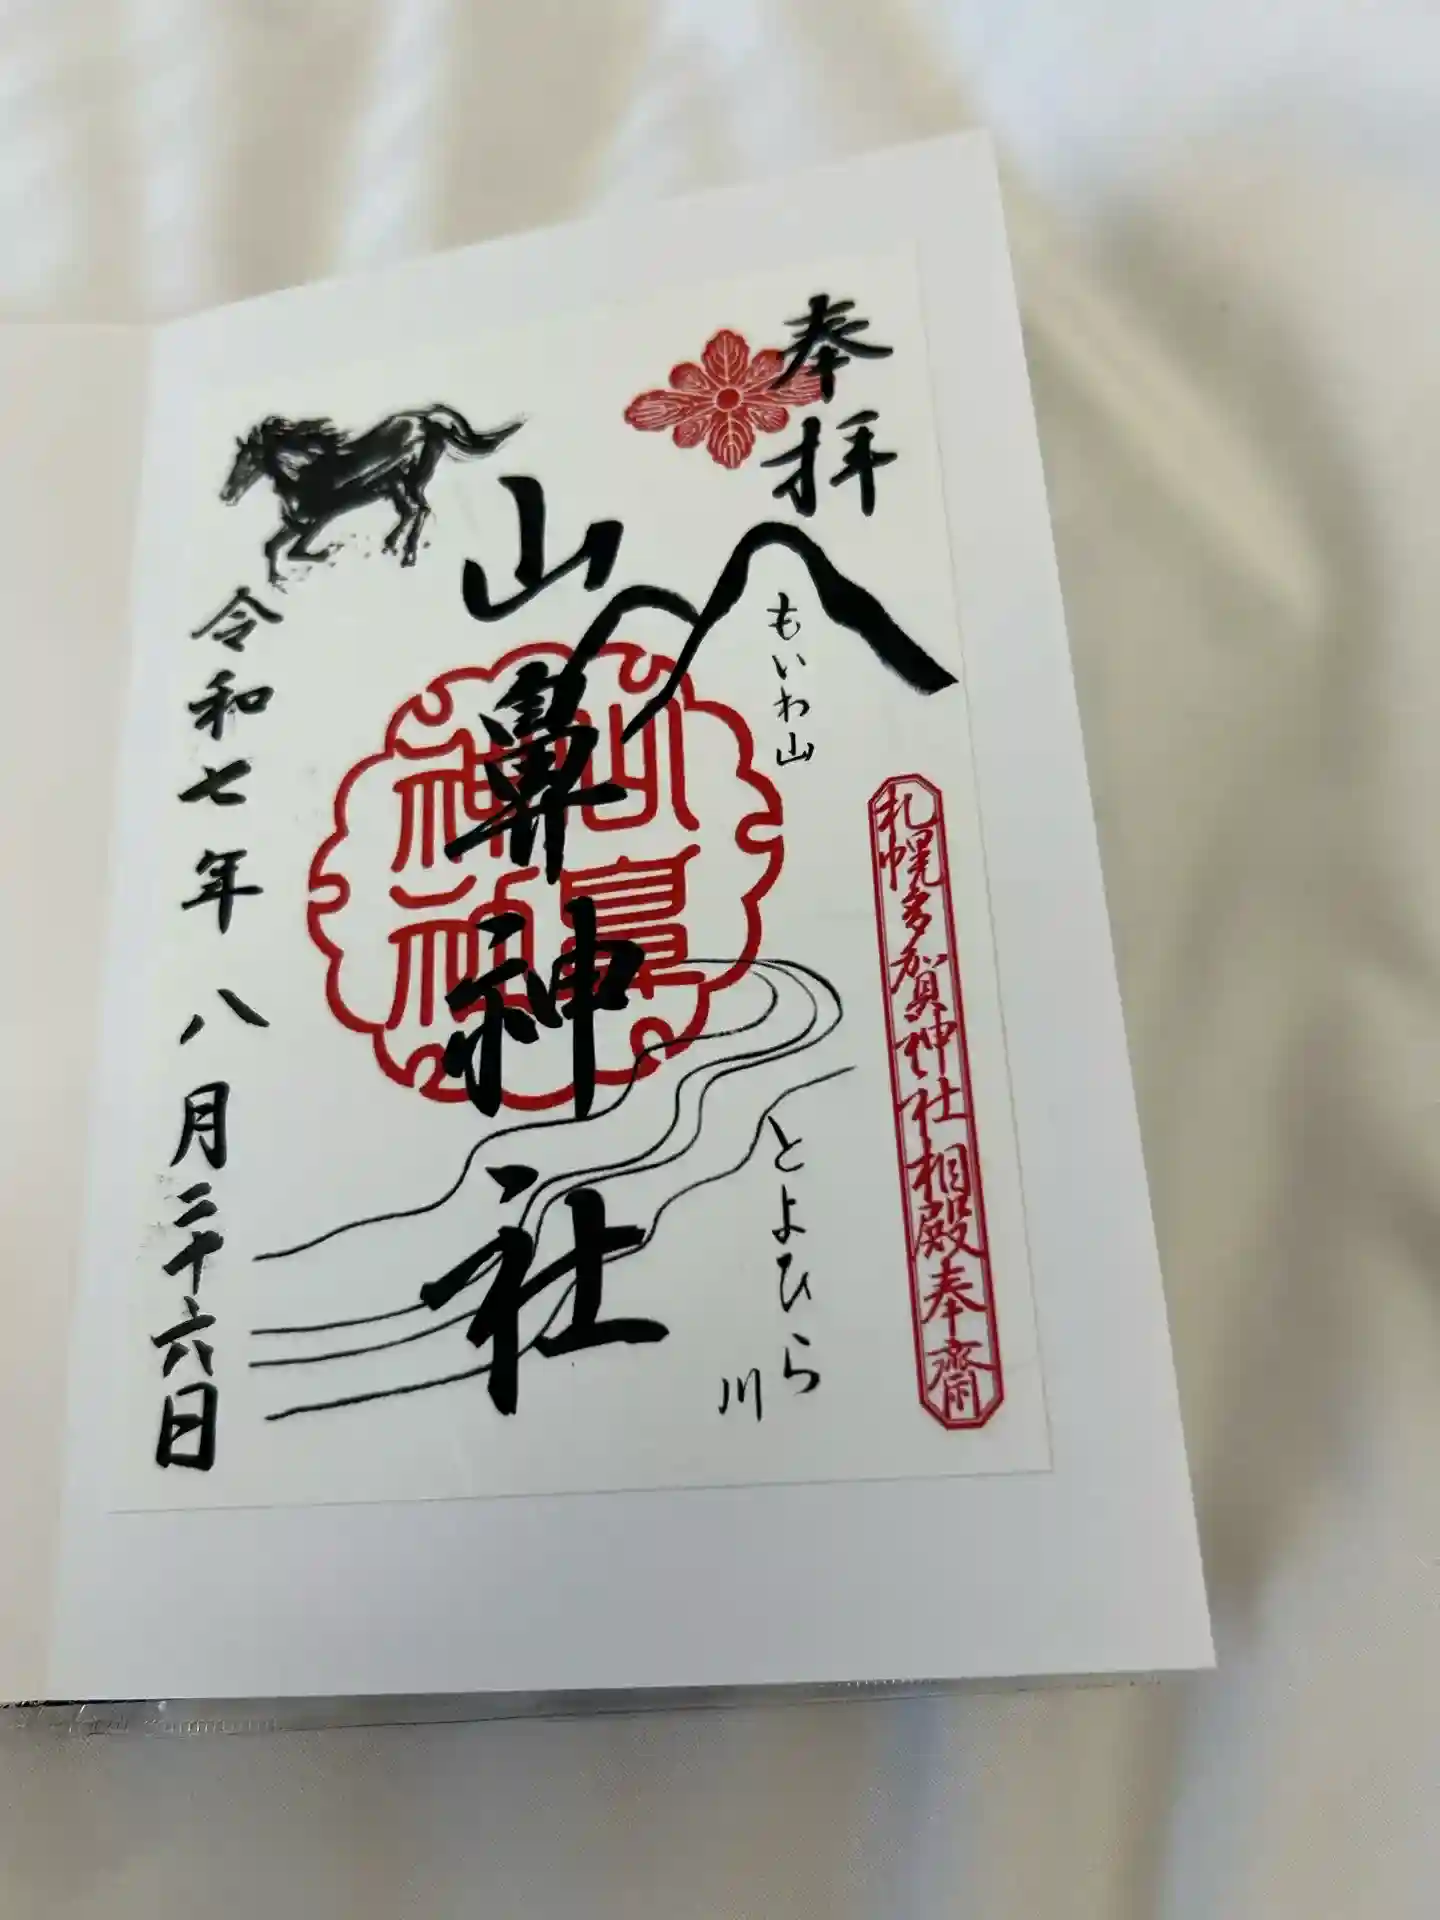 奉拝
もいわ山
札幌多賀神社相殿奉齋
とよひら川
山鼻神社
山鼻神社
令和七年八月二十六日